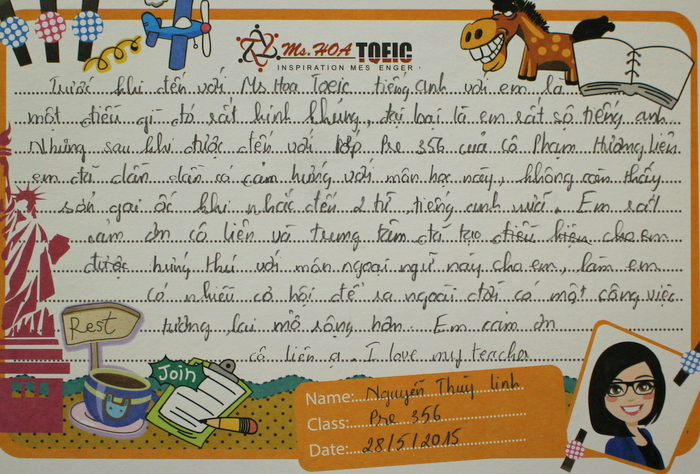 Ms.HOA TOEIC
INSPIRATION MESSENGER
Trước khi đến với Ms Hoa Toeic tiếng anh với em là
một điều gì đó rất kinh khủng, đại loại là em rất sợ tiếng anh
Nhưng sau khi được đến với lớp Pre 356 của cô Phạm Hương Liên
em đã dần dần có cảm hứng với môn học này, không còn thấy
sởn gai ốc khi nhắc đến 2 từ tiếng anh nữa. Em rất
cảm ơn cô liên và trung tâm đã tạo điều kiện cho em
được hứng thú với môn ngoại ngữ này cho em, làm em
có nhiều cơ hội để ra ngoài đời có một công việc
tương lai mở rộng hơn. Em cảm ơn
cô liên ạ. I love my teacher
Rest
Join
Name: Nguyễn Thùy linh
Class: Pre 356
Date: 28/5/2015